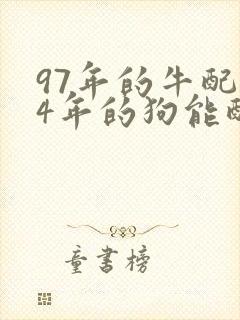 97年的牛配
4年的狗能
童书榜